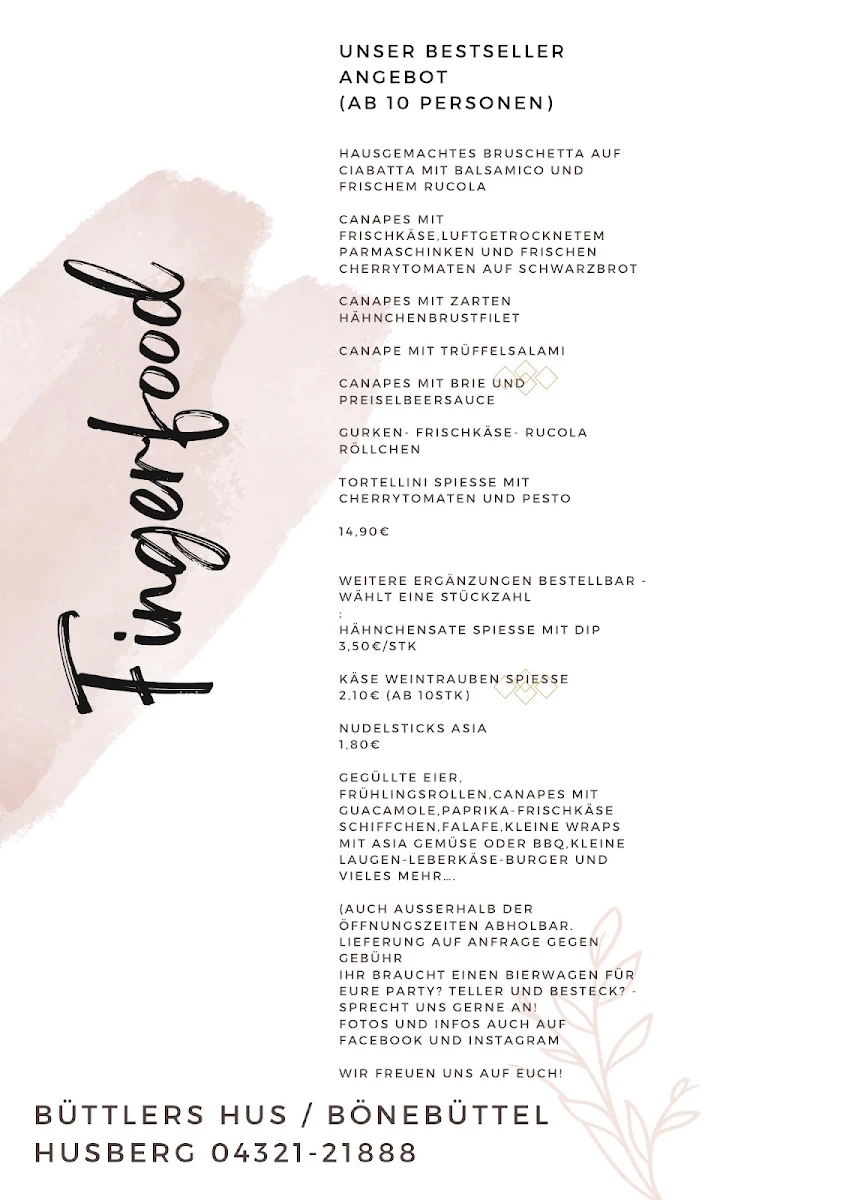 Fingerfood
UNSER BESTSELLER
ANGEBOT
(AB 10 PERSONEN)
HAUSGEMACHTES BRUSCHETTA AUF
CIABATTA MIT BALSAMICO UND
FRISCHEM RUCOLA
CANAPES MIT
FRISCHKÄSE,LUFTGETROCKNETEM
PARMASCHINKEN UND FRISCHEN
CHERRYTOMATEN AUF SCHWARZBROT
CANAPES MIT ZARTEN
HÄHNCHENBRUSTFILET
CANAPE MIT TRÜFFELSALAMI
CANAPES MIT BRIE UND
PREISELBEERSAUCE
GURKEN- FRISCHKÄSE- RUCOLA
RÖLLCHEN
TORTELLINI SPIESSE MIT
CHERRYTOMATEN UND PESTO
14,90€
WEITERE ERGÄNZUNGEN BESTELLBAR -
WÄHLT EINE STÜCKZAHL
:
HÄHNCHENSATE SPIESSE MIT DIP
3,50€/STK
KÄSE WEINTRAUBEN SPIESSE
2,10€ (AB 10STK)
NUDELSTICKS ASIA
1,80€
GEGÜLLTE EIER,
FRÜHLINGSROLLEN,CANAPES MIT
GUACAMOLE,PAPRIKA-FRISCHKÄSE
SCHIFFCHEN,FALAFE,KLEINE WRAPS
MIT ASIA GEMÜSE ODER BBQ,KLEINE
LAUGEN-LEBERKÄSE-BURGER UND
VIELES MEHR….
(AUCH AUSSERHALB DER
ÖFFNUNGSZEITEN ABHOLBAR.
LIEFERUNG AUF ANFRAGE GEGEN
GEBÜHR
IHR BRAUCHT EINEN BIERWAGEN FÜR
EURE PARTY? TELLER UND BESTECK? -
SPRECHT UNS GERNE AN!
FOTOS UND INFOS AUCH AUF
FACEBOOK UND INSTAGRAM
WIR FREUEN UNS AUF EUCH!
BÜTTLERS HUS / BÖNEBÜTTEL
HUSBERG 04321-21888